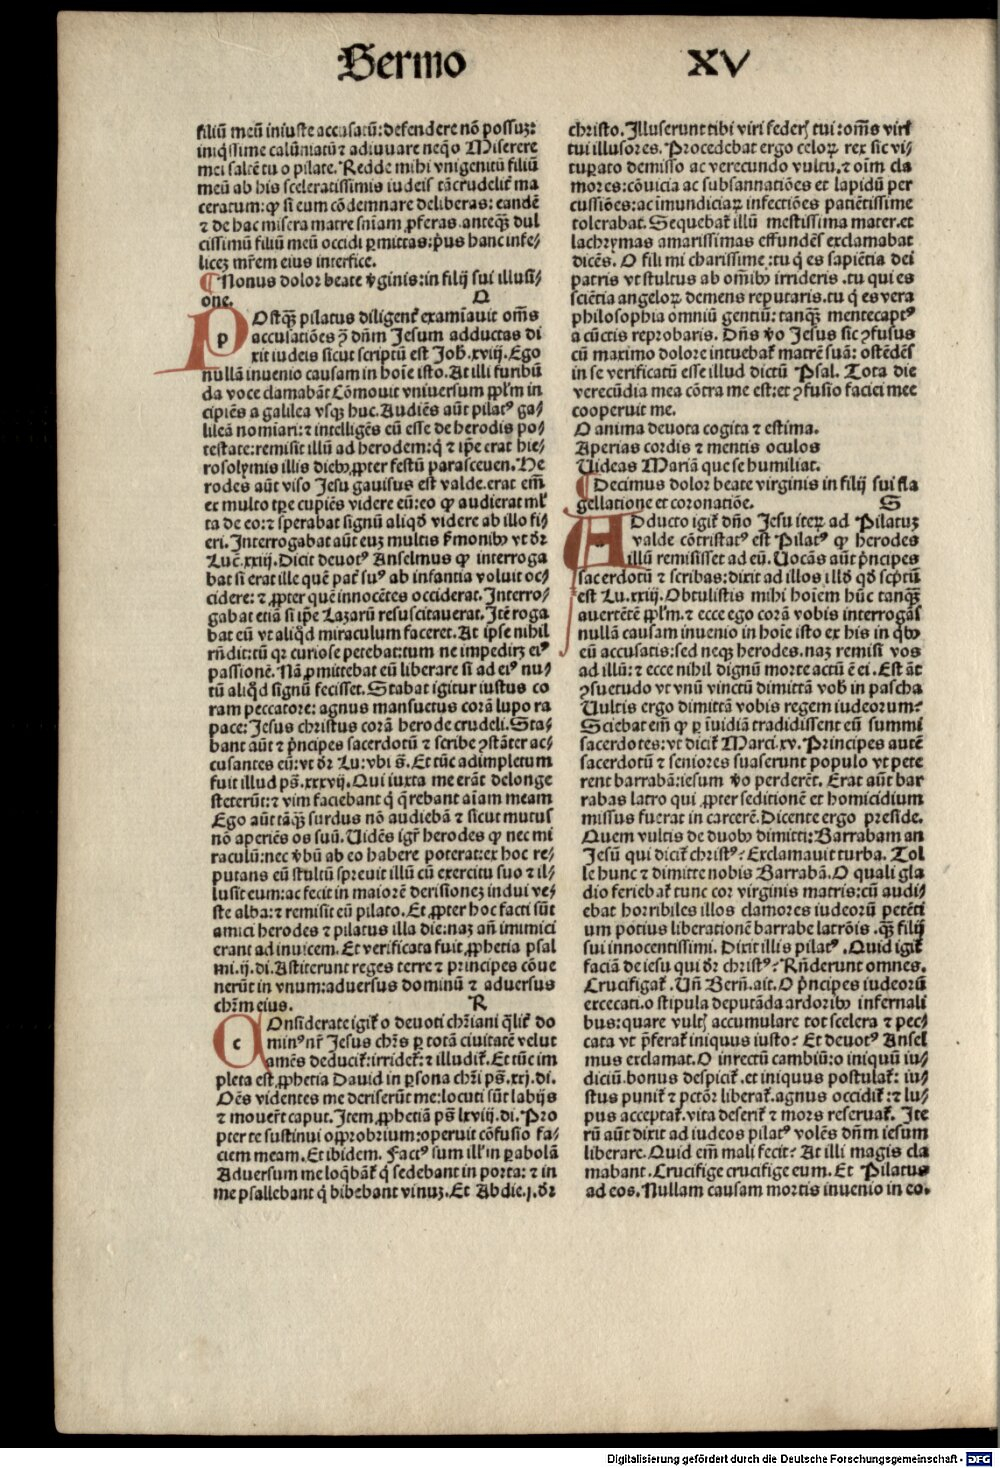 Sermo XV
filiū meū iniuste accusatū: defendere nō possuꝫ:
iniq̄ssime calūniatū ⁊ adiuuare neq̄o Miserere
mei saltē tu o pilate. Redde mihi vnigenitū filiū
meū ab his sceleratissimis iudeis tā crudelit̄ ma
ceratum: ꝙ si eum cōdemnare deliberas: eandē
⁊ de hac misera matre sn̄iam ꝓferas. anteqꝫ dul
cissimū filiū meū occidi ꝑmittas: p̄us hanc infe/
liceꝫ mr̄em eius interfice.
¶ Nonus dolor beate v̄ginis: in filij sui illusi/
one. Q
POstqꝫ pilatus diligent̄ examīauit om̄s
accusatiōes ꝯ̄ dn̄m Jesum adductas di
xit iudeis sicut scriptū est Joh̄. xviij. Ego
nullā inuenio causam in hoīe isto. At illi furibū
da voce clamabāt Cōmouit vniuersum ppl̄m in
cipiēs a galilea vsqꝫ huc. Audiēs aūt pilatꝰ ga/
lileā nomiari: ⁊ intelligēs eū esse de herodis po/
testate: remisit illū ad herodem: q̄ ⁊ ip̄e erat hie/
rosolymis illis diebꝫ ꝓpter festū parasceuen. He
rodes aūt viso Jesu gauisus est valde. erat em̄
ex multo tp̄e cupiēs videre eū: eo ꝙ audierat ml̄
ta de eo: ⁊ sperabat signū aliqd̄ videre ab illo fi/
eri. Interrogabat aūt euꝫ multis s̄monibꝫ vt dr̄
Luc̄. xxiij. Dicit deuotꝰ Anselmus ꝙ interroga
bat si erat ille quē pat̄ suꝰ ab infantia voluit oc/
cidere: ⁊ ꝓpter quē innocētes occiderat. Interro/
gabat etiā si ip̄e Lazarū resuscitauerat. Itē roga
bat eū vt aliqd̄ miraculum faceret. At ipse nihil
rn̄dit: tū qꝛ curiose petebat: tum ne impediret̄ eiꝰ
passionē. Nā ꝓmittebat eū liberare si ad eiꝰ nu/
tū aliqd̄ signū fecisset. Stabat igitur iustus co
ram peccatore: agnus mansuetus corā lupo ra
pace: Jesus christus corā herode crudeli. Sta/
bant aūt ⁊ p̄ncipes sacerdotū ⁊ scribe ꝯstāter ac/
cusantes eū: vt dr̄ Lu: vbi s̄. Et tūc adimpletum
fuit illud ps̄. xxxvij. Qui iuxta me erāt de longe
steterūt: ⁊ vim faciebant q̄ q̄rebant aīam meam
Ego aūt tāqꝫ surdus nō audiebā ⁊ sicut mutus
nō aperiēs os suū. Uidēs igr̄ herodes ꝙ nec mi
raculū: nec v̄bū ab eo habere poterat: ex hoc re/
putans eū stultū spreuit illū cū exercitu suo ⁊ il/
lusit eum: ac fecit in maiorē derisioneꝫ indui ve/
ste alba: ⁊ remisit eū pilato. Et ꝓpter hoc facti sūt
amici herodes ⁊ pilatus illa die: naꝫ añ inimici
erant ad inuicem. Et verificata fuit ꝓphetia psal
mi. ij. di. Astiterunt reges terre ⁊ principes cōue
nerūt in vnum: aduersus dominū ⁊ aduersus
chr̄m eius. R
COnsiderate igit̄ o deuoti chr̄iani q̄lit̄ do
minꝰ nr̄ Jesus chr̄s ꝑ totā ciuitatē velut
amēs deducit̄: irridet̄: ⁊ illudit̄. Et tūc im
pleta est ꝓphetia Dauid in ꝑsona chr̄i ps̄. xxj. di.
Oēs videntes me deriserūt me: locuti sūt labijs
⁊ mouer̄t caput. Item ꝓphetiā ps̄ lxviij. di. Pro
pter te sustinui opprobrium: operuit cōfusio fa/
ciem meam. Et ibidem. Factꝰ sum ill̄ in ꝑabolā
Aduersum me loq̄bāt̄ q̄ sedebant in porta: ⁊ in
me psallebant q̄ bibebant vinuꝫ. Et Abdie. j. dr̄
christo. Illuserunt tibi viri feder̄ tui: om̄s viri
tui illusores. Procedebat ergo celoꝝ rex sic vi/
tuꝑato demisso ac verecundo vultu. ⁊ oīm cla
mores: cōuicia ac subsannatiōes et lapidū per
cussiōes: ac imundiciaꝝ infectiōes patiētissime
tolerabat. Sequebat̄ illū mestissima mater. et
lachrymas amarissimas effundēs exclamabat
dicēs. O fili mi charissime: tu q̄ es sapiētia dei
patris vt stultus ab om̄ibꝫ irrideris. tu qui es
sciētia angeloꝝ demens reputaris. tu q̄ es vera
philosophia omniū gentiū: tanqꝫ mentecaptꝰ
a cūctis reprobaris. Dn̄s v̄o Jesus sic ꝯfusus
cū maximo dolore intuebat̄ matrē suā: ostēdēs
in se verificatū esse illud dictū Psal. Tota die
verecūdia mea cōtra me est: et ꝯfusio faciei mee
cooperuit me.
O anima deuota cogita ⁊ estima.
Aperias cordis ⁊ mentis oculos
Uideas Mariā que se humiliat.
¶ Decimus dolor beate virginis in filij sui fla
gellatione et coronatiōe. S
ADducto igit̄ dn̄o Jesu iteꝝ ad Pilatuꝫ
valde cōtristatꝰ est Pilatꝰ ꝙ herodes
illū remisisset ad eū. Uocās aūt p̄ncipes
sacerdotū ⁊ scribas: dixit ad illos illd̄ qd̄ scp̄tū
est Lu. xxiij. Obtulistis mihi hoīem hūc tanqꝫ
auertētē ppl̄m. ⁊ ecce ego corā vobis interrogās
nullā causam inuenio in hoīe isto ex his in qbꝫ
eū accusatis: sed neqꝫ herodes. naꝫ remisi vos
ad illū: ⁊ ecce nihil dignū morte actū ē ei. Est āt
ꝯsuetudo vt vnū vinctū dimittā vob̄ in pascha
Uultis ergo dimittā vobis regem iudeorum?
Sciebat em̄ ꝙ ꝑ īuidiā tradidissent eū summi
sacerdotes: vt dicit̄ Marci. xv. Principes autē
sacerdotū ⁊ seniores suaserunt populo vt pete
rent barrabā: iesum v̄o perderēt. Erat aūt bar
rabas latro qui ꝓpter seditionē et homicidium
missus fuerat in carcerē. Dicente ergo preside.
Quem vultis de duobꝫ dimitti: Barrabam an
Jesū qui dicit̄ christꝰ? Exclamauit turba. Tol
le hunc ⁊ dimitte nobis Barrabā. O quali gla
dio feriebat̄ tunc cor virginis matris: cū audi/
ebat horribiles illos clamores iudeorū petēti
um potius liberationē barrabe latrōis. qꝫ filij
sui innocentissimi. Dixit illis pilatꝰ. Quid igit̄
faciā de iesu qui dr̄ christꝰ? Rn̄derunt omnes.
Crucifigat̄. Un̄ Bern̄. ait. O p̄ncipes iudeorū
excecati. o stipula deputāda ardoribꝫ infernali
bus: quare vult̄ accumulare tot scelera ⁊ pec/
cata vt p̄ferat̄ iniquus iusto? Et deuotꝰ Ansel
mus exclamat. O inrectū cambiū: o iniquū iu/
diciū. bonus despicit̄. et iniquus postulat̄: iu/
stus punit̄ ⁊ pctōr liberat̄. agnus occidit̄: ⁊ lu/
pus acceptat̄. vita deserit̄ ⁊ mors reseruat̄. Ite
rū aūt dixit ad iudeos pilatꝰ volēs dn̄m iesum
liberare. Quid em̄ mali fecit? At illi magis cla
mabant. Crucifige crucifige eum. Et Pilatus
ad eos. Nullam causam mortis inuenio in eo.
Digitalisierung gefördert durch die Deutsche Forschungsgemeinschaft - DFG